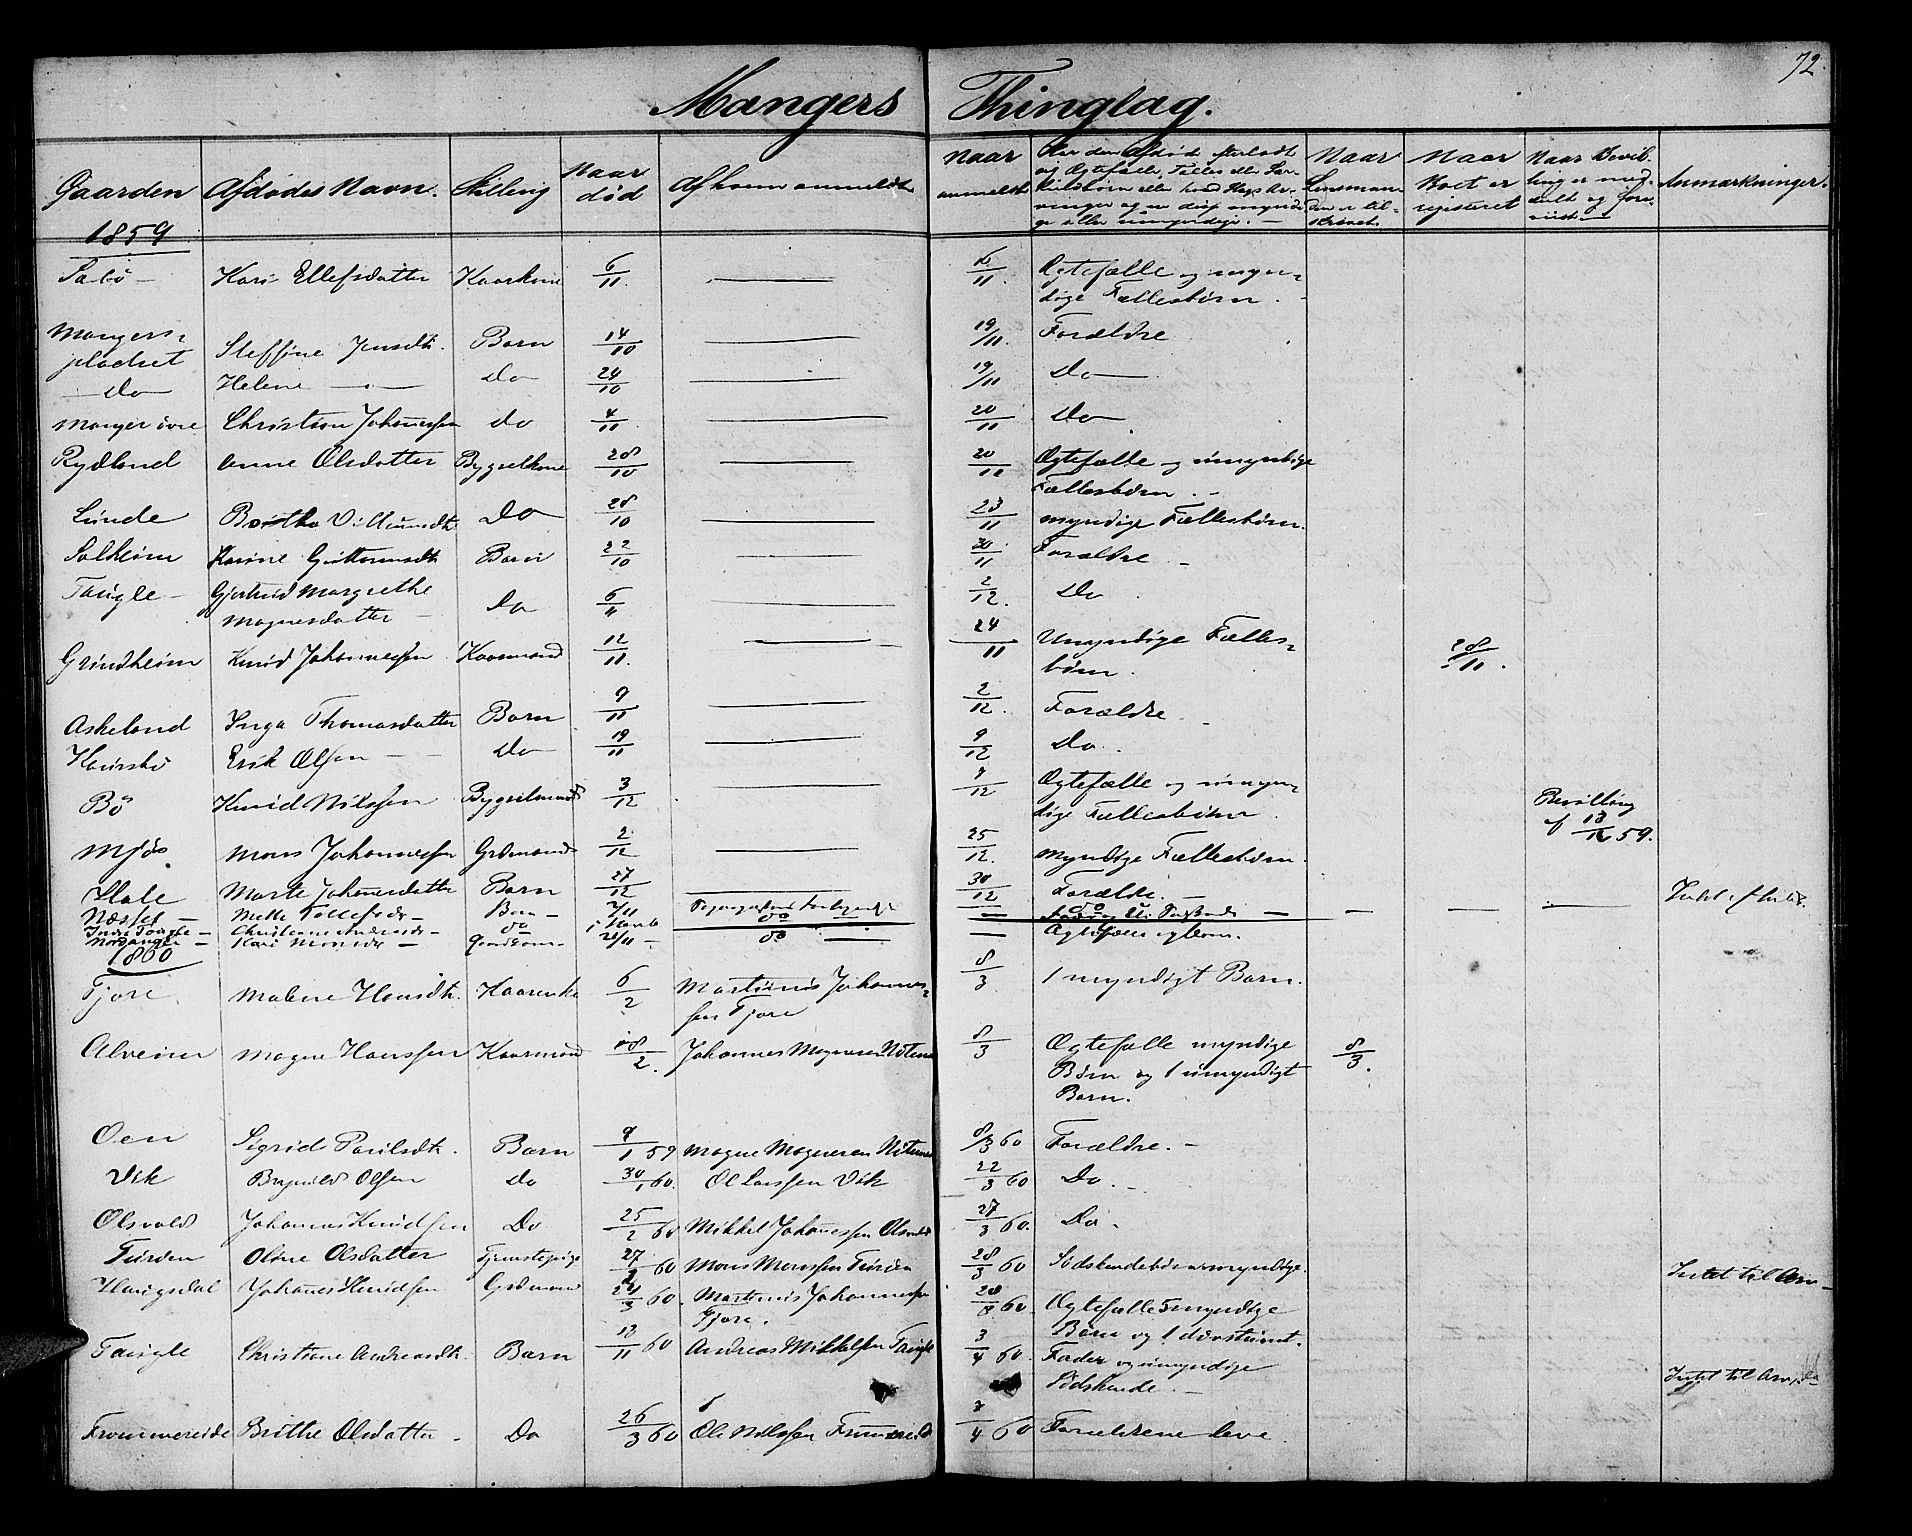 72.
Mangers Thinglag.
Gaarden | Afdødes Navn. | Stilling | Naar død | Af hvem anmeldt | Naar anmeldt | Har den Afdøde efterladt sig Ægtefælle, Fælles eller Særkilsbørn eller hvad Slags Arvinger og er disse myndige eller umyndige. | Naar Lensmanden er tilskrevet. | Naar Boet er registeret | Naar Bevilling er meddelt og | Anmærkninger.
1859
Sæbø | Kari Ellefsdatter | Kaarkone | 6/11. | — | 6/11. | Ægtefælle og myndige Fællesbørn.
Mangerspladset | Steffine Jensdtr. | Barn | 14/10 | — | 19/11. | Forældre
Do | Helene —"— | Do | 24/10 | — | 19/11 | Do
Manger øvre | Christian Johannessen | do | 4/11 | — | 20/11 | Do
Rydland | Anne Olsdatter | Bygselkone | 28/10 | — | 20/11 | Ægtefælle og umyndige Fællesbørn.
Lunde | Brithe Villumsdtr | Do | 28/10 | — | 23/11 | myndige Fællesbørn.
Solheim | Karine Guttormsdtr | Barn | 22/10 | — | 30/11 | Forældre
Taugle | Gjertrud Margrethe Magnesdatter | Do | 6/11 | — | 2/12. | Do
Grindheim | Knud Johannessen | Kaarmand | 12/11. | — | 24/11 | Umyndige Fællesbørn. | 28/11.
Askeland | Inga Thomasdatter | Barn | 9/11 | — | 2/12. | Forældre
Erik Olsen | Do | 19/11 | — | 9/12 | Do.
Bø | Knud Nilssen | Bygselmand | 3/12 | — | 7/12 | Ægtefælle og umyndige Fællesbørn. | Bevilling af 13/12 59.
Mjøs | Mons Johannessen | Grdmand | 2/12 | — | 25/12. | myndige Fællesbørn.
Marte Johannesdatter | Barn | 27/12 | — | 30/12 | Forældre.
Næsset | Mette Tollefsdr | Barn | 7/11
Indre Taugle | Christiane Andreasdr | do | do
Nordanger | Kari Monsdr | Gaardkone | 21/11 | do | Ægtefælle og Børn.
1860
Fjore | Malene Hansdtr. | Kaarenke | 6/2 | Martinus Johannessen Fjore | 8/3 | 1 myndigt Barn.
Alveim | Magne Hanssen | Kaarmand | 18/2. | Johannes Magnesen | 8/3 | Ægtefælle myndige Børn og 1 umyndigt Barn. | 8/3.
Oen | Sigrid Paulsdtr. | Barn | 9/1 59 | Magne Magnesen | 8/3 60 | Forældre.
Vik | Brynild Olsen | Do | 30/1 60. | Ol Larssen Vik | 22/3 60 | Do.
Olsvold | Johannes Knudsen | Do | 25/2 60 | Mikkel Johannessen Olsvold | 27/3 60. | Do.
Oline Olsdatter | Tjenstepige | 27/2 60 | Mons Monssen | 28/3 60 | Sødskendebørn umyndige. | Intet til Arv
Haugsdal | Johannes Knudsen | Grdmand | 24/3 60. | Martinus Johannessen Fjore. | 28/3 60. | Ægtefælle 5 myndige Børn og 1
Taugle | Christiane Andreasdtr. | Barn | 18/11 60 | Andreas Mikkelsen Taugle | 3/4 60. | Fader og umyndige Sødskende. | Intet til Arv.
Frommereide | Brithe Olsdatter | Do | 26/3 60 | Ole Nilssen | 3/4 60 | Forældrene leve